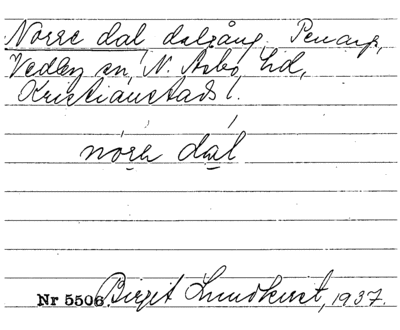 Norre dal, dalgång. Penarp,
Vedby sn, N. Åsbo hd,
Kristianstads l.
nore dal
Nr 5506. Birgit Lundkvist, 1937.